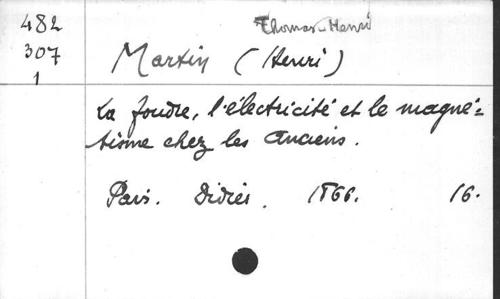 482
307
1
Thomas-Henri
Martin (Henri)
La foudre, l'électricité et le magné=
tisme chez les Anciens.
Paris. Didier. 1866. 16.